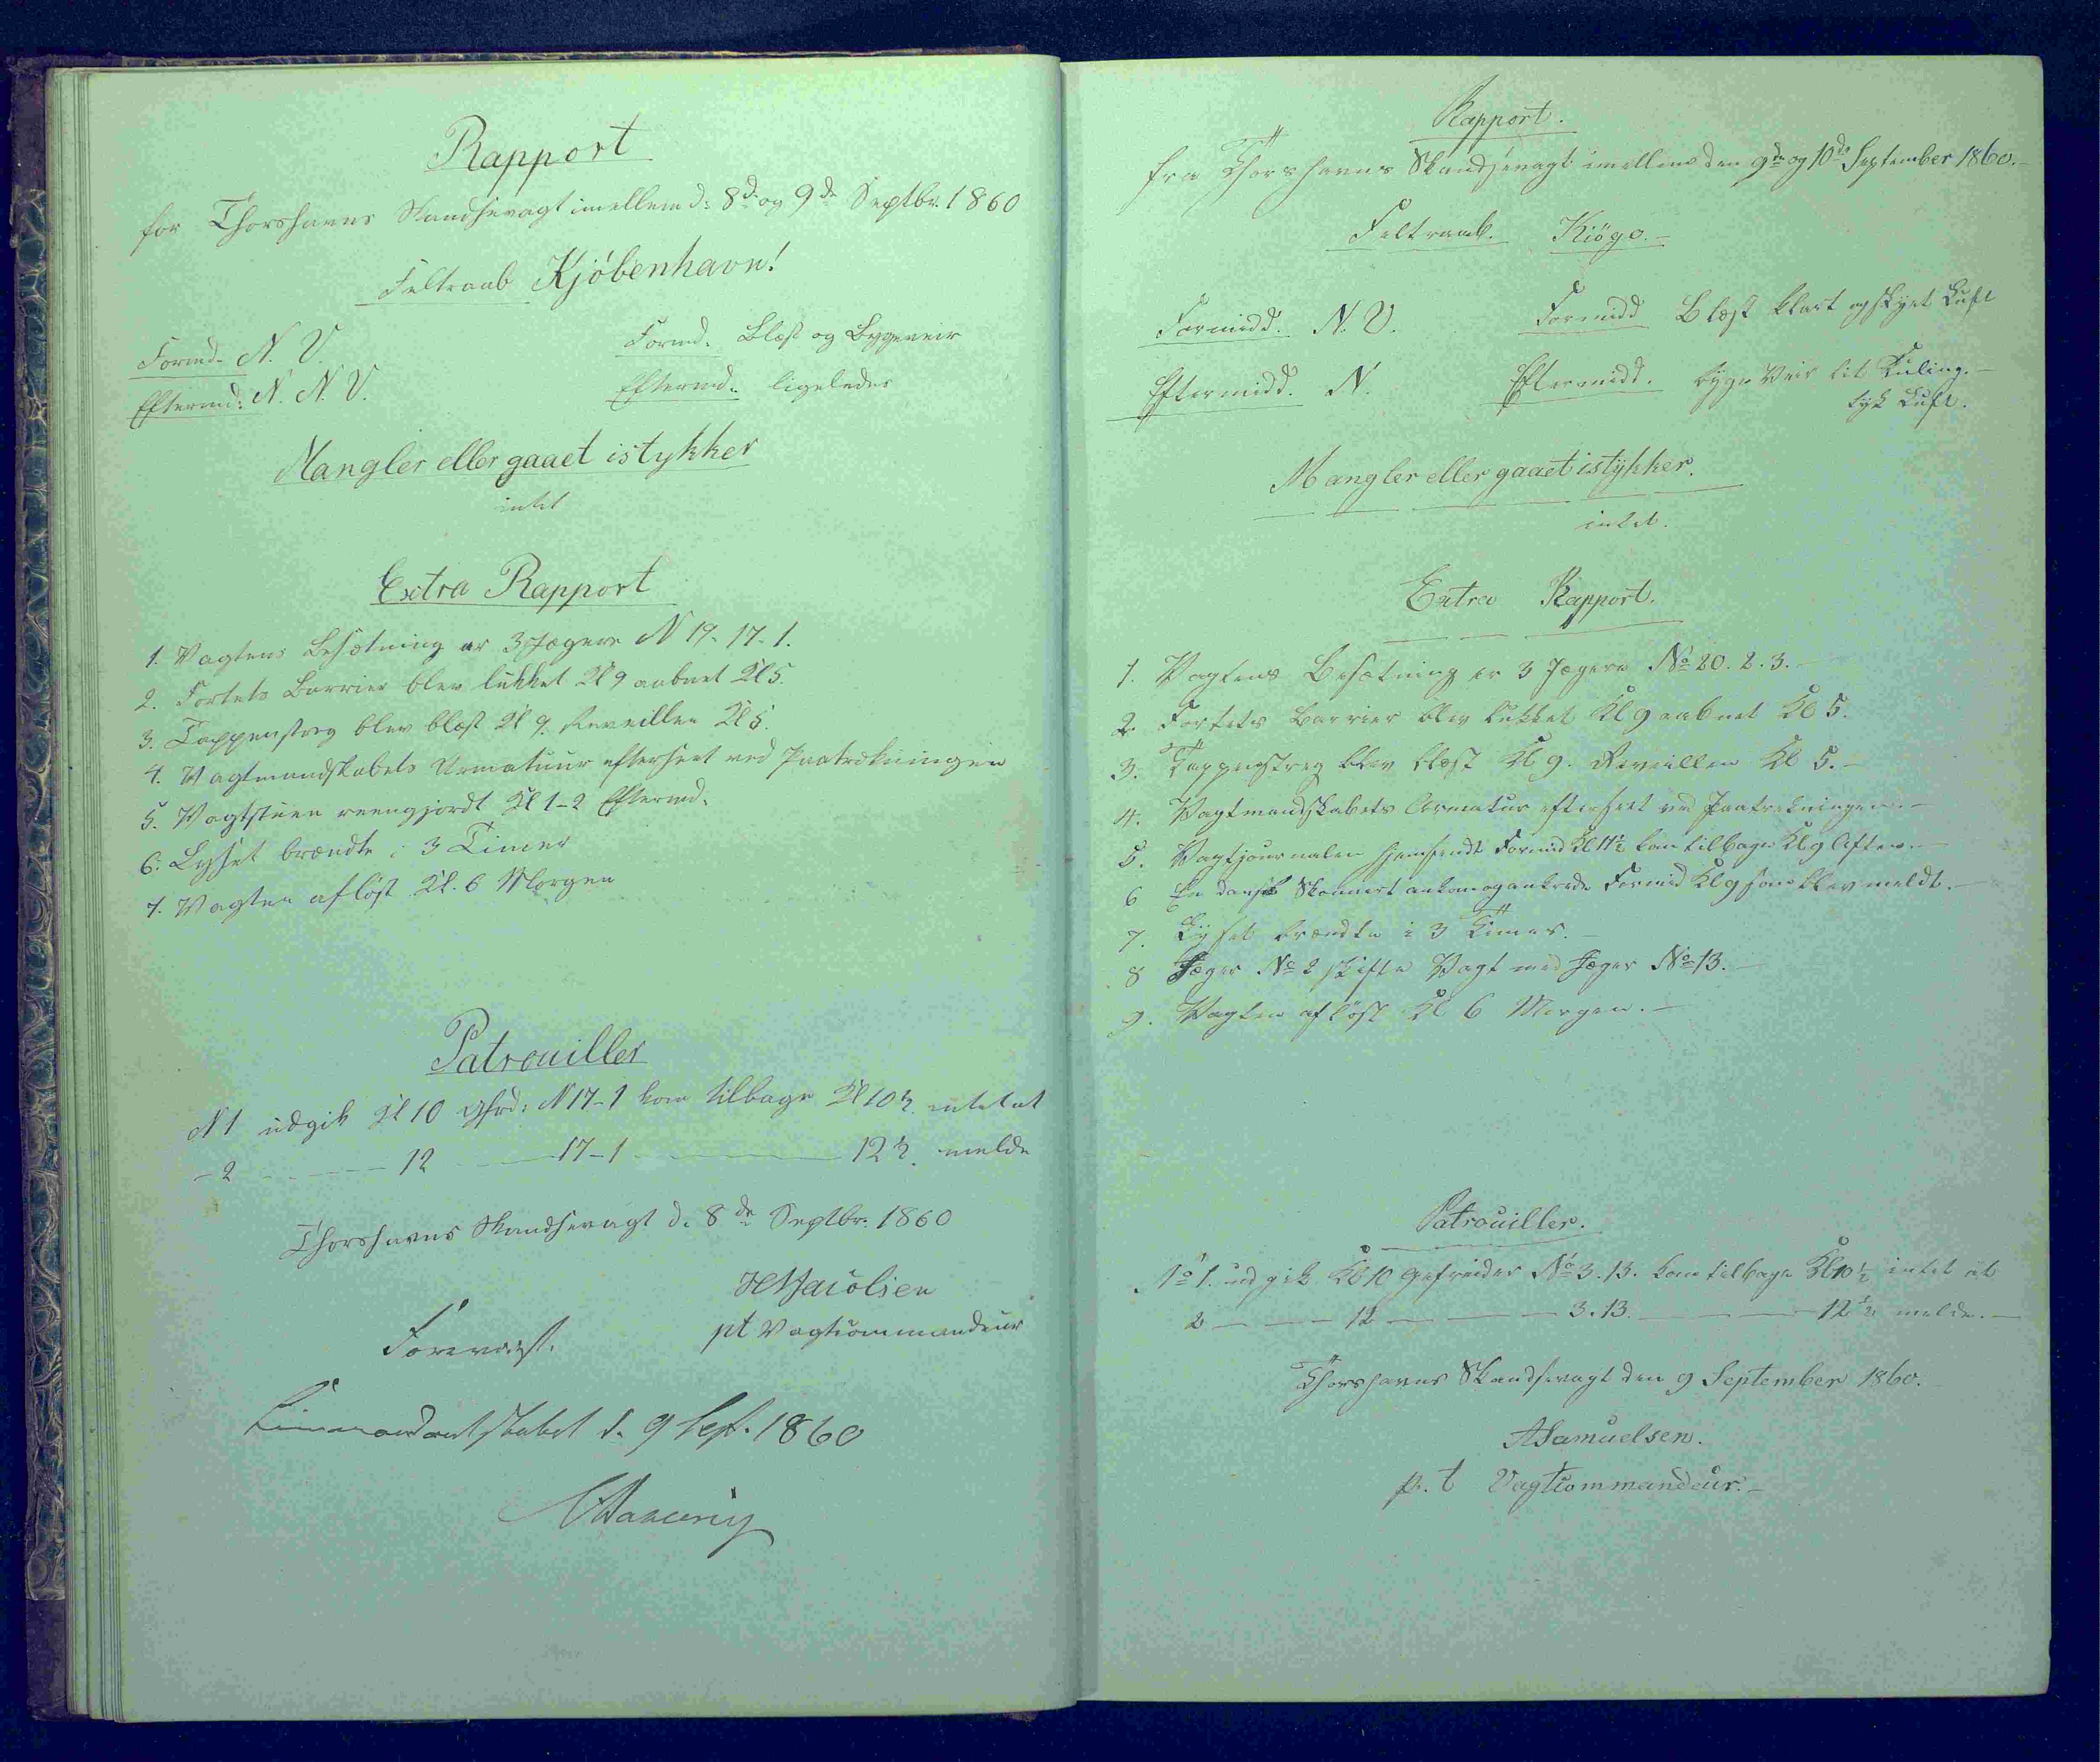 Rapport
for Thorshavns Skandsevagt imellem d: 8de og 9de Septbr. 1860
Feltraab Kjöbenhavn!
Formd. N. V. Formd. Blæst og Bygeveir
Eftermd: N. N. V. Eftermd. ligeledes
Mangler eller gaaet istykker
intet
Extra Rapport
1. Vagtens Besætning er 3 Jægere N 19. 17. 1.
2. Fortets Barrier blev lukket Kl 9 aabnet Kl 5.
3. Tappenstreg blev blæst Kl 9. Reveillen Kl 5.
4. Vagtmandskabets Armatuur efterseet ved Paatrækningen
5. Vagtstuen reengjordt Kl 1-2 Eftermd.
6. Lyset brændte i 3 Timer
7. Vagten aflöst Kl. 6 Morgen
Patrouiller
N 1 udgik Kl 10 Gfrd: N 17-1 kom tilbage Kl 10½ intet at
- 2 - - - 12 - 17-1 - 12½ melde
Thorshavns Skandsevagt d. 8de Septbr. 1860
Jacobsen
pt Vagtcommandeur
Forevüst.
Commandantskabet d. 9 Sept. 1860
Rapport.
fra Thorshavns Skandsevagt imellem den 9de og 10de September 1860.-
Feltraab. Kiöge.-
Formidd. N. V. Formidd Blæst klart og skyet Luft
Eftermidd. N. Eftermidd. byge Veir lit Kuling.-
tyk Luft.
Mangler eller gaaet istykker.
intet.
Extra Rapport.
1. Vagtens Besætning er 3 Jægere No 20. 2. 3.-
2. Fortets Barrier blev lukket Kl 9 aabnet Kl 5.
3. Tappenstreg blev blæst Kl 9. Reveillen Kl 5.-
4. Vagtmandskabets Armatur efterseet ved Paatrækningen.-
5. Vagtjournalen hjemsendt Formid Kl 11½ kom tilbage Kl 9 Aften.-
6 En dansk Skonnert ankom og ankrede Formid Kl 9 som blev meldt.-
7. Lyset brændte i 3 Timer.-
8 Jæger No 2 skifte Vagt med Jæger No 13.-
9. Vagten aflöst Kl 6 Morgen.-
Patrouiller.
No 1. udgik Kl 10 Gefreider No 3. 13. kom tilbage Kl 10½ intet at
2 - - - 12 - - - 3. 13. - - - 12½ melde.-
Thorshavns Skandsevagt den 9 September 1860.
A Samuelsen.
p. t Vagtcommandeur.-